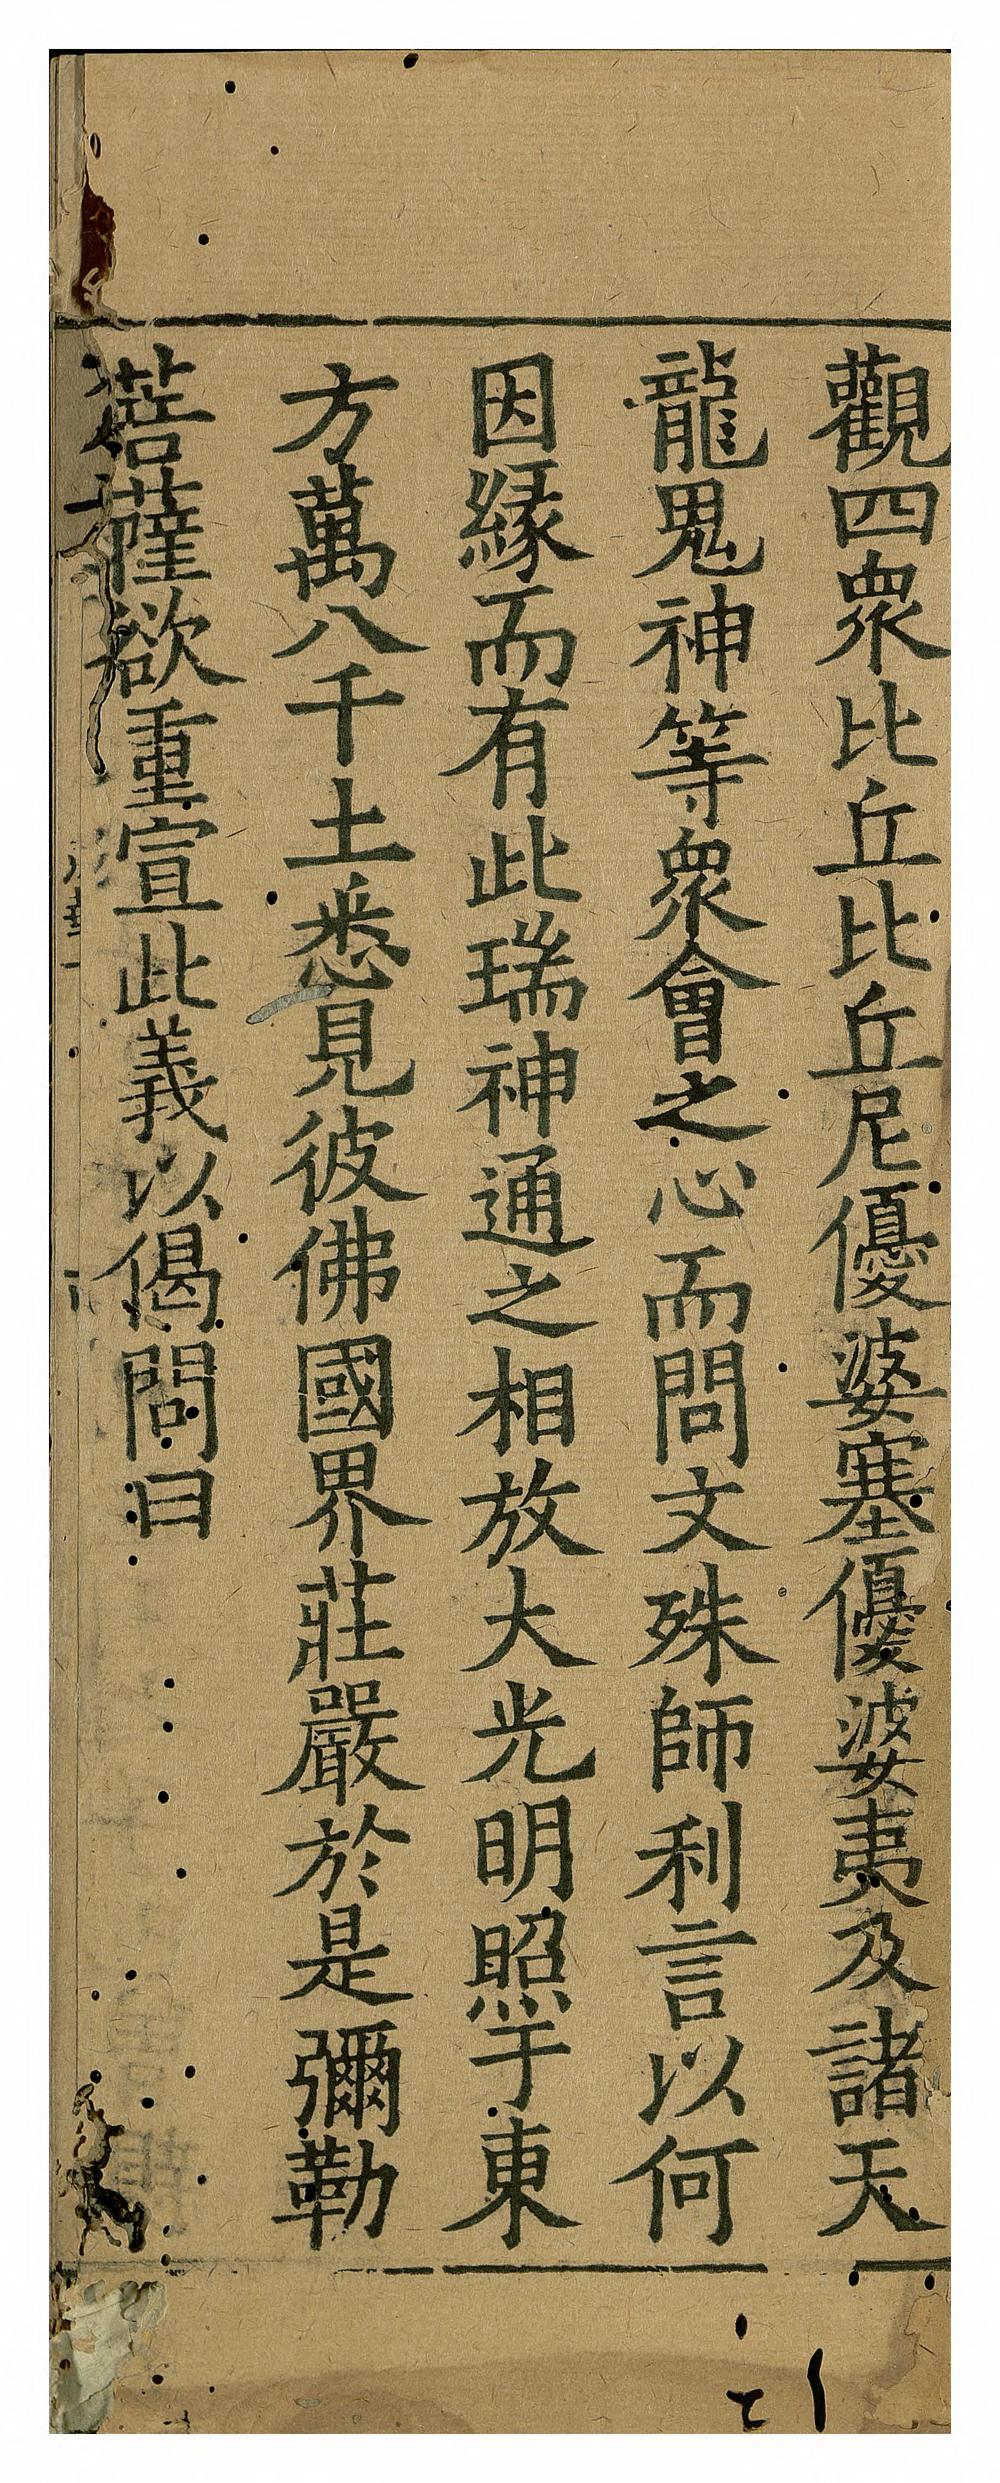 觀四衆比丘比丘尼優婆塞優婆夷及諸天
龍鬼神等衆會之心而問文殊師利言以何
因緣而有此瑞神通之相放大光明照于東
方萬八千土悉見彼佛國界莊嚴於是彌勒
菩薩欲重宣此義以偈問曰